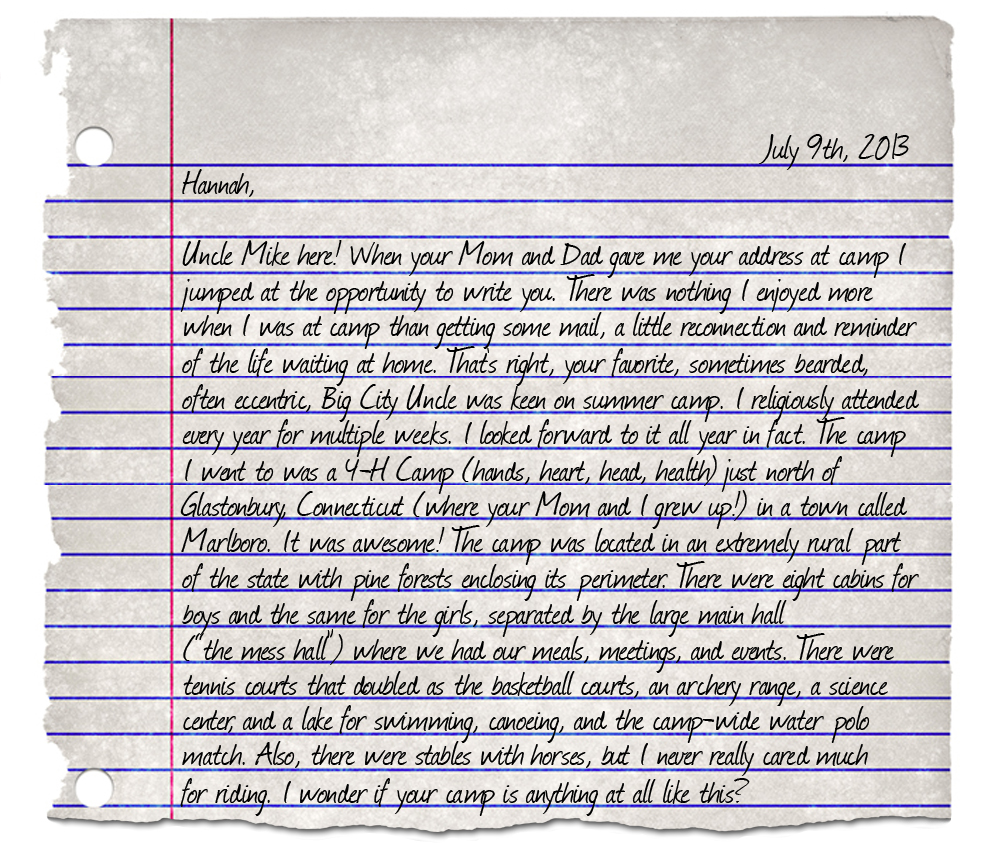 July 9th, 2013
Hannah,
Uncle Mike here! When your Mom and Dad gave me your address at camp I
jumped at the opportunity to write you. There was nothing I enjoyed more
when I was at camp than getting some mail, a little reconnection and reminder
of the life waiting at home. That's right, your favorite, sometimes bearded,
often eccentric, Big City Uncle was keen on summer camp. I religiously attended
every year for multiple weeks. I looked forward to it all year in fact. The camp
I went to was a 4-H Camp (hands, heart, head, health) just north of
Glastonbury, Connecticut (where your Mom and I grew up!) in a town called
Marlboro. It was awesome! The camp was located in an extremely rural part
of the state with pine forests enclosing its perimeter. There were eight cabins for
boys and the same for the girls, separated by the large main hall
("the mess hall") where we had our meals, meetings, and events. There were
tennis courts that doubled as the basketball courts, an archery range, a science
center, and a lake for swimming, canoeing, and the camp-wide water polo
match. Also, there were stables with horses, but I never really cared much
for riding. I wonder if your camp is anything at all like this?